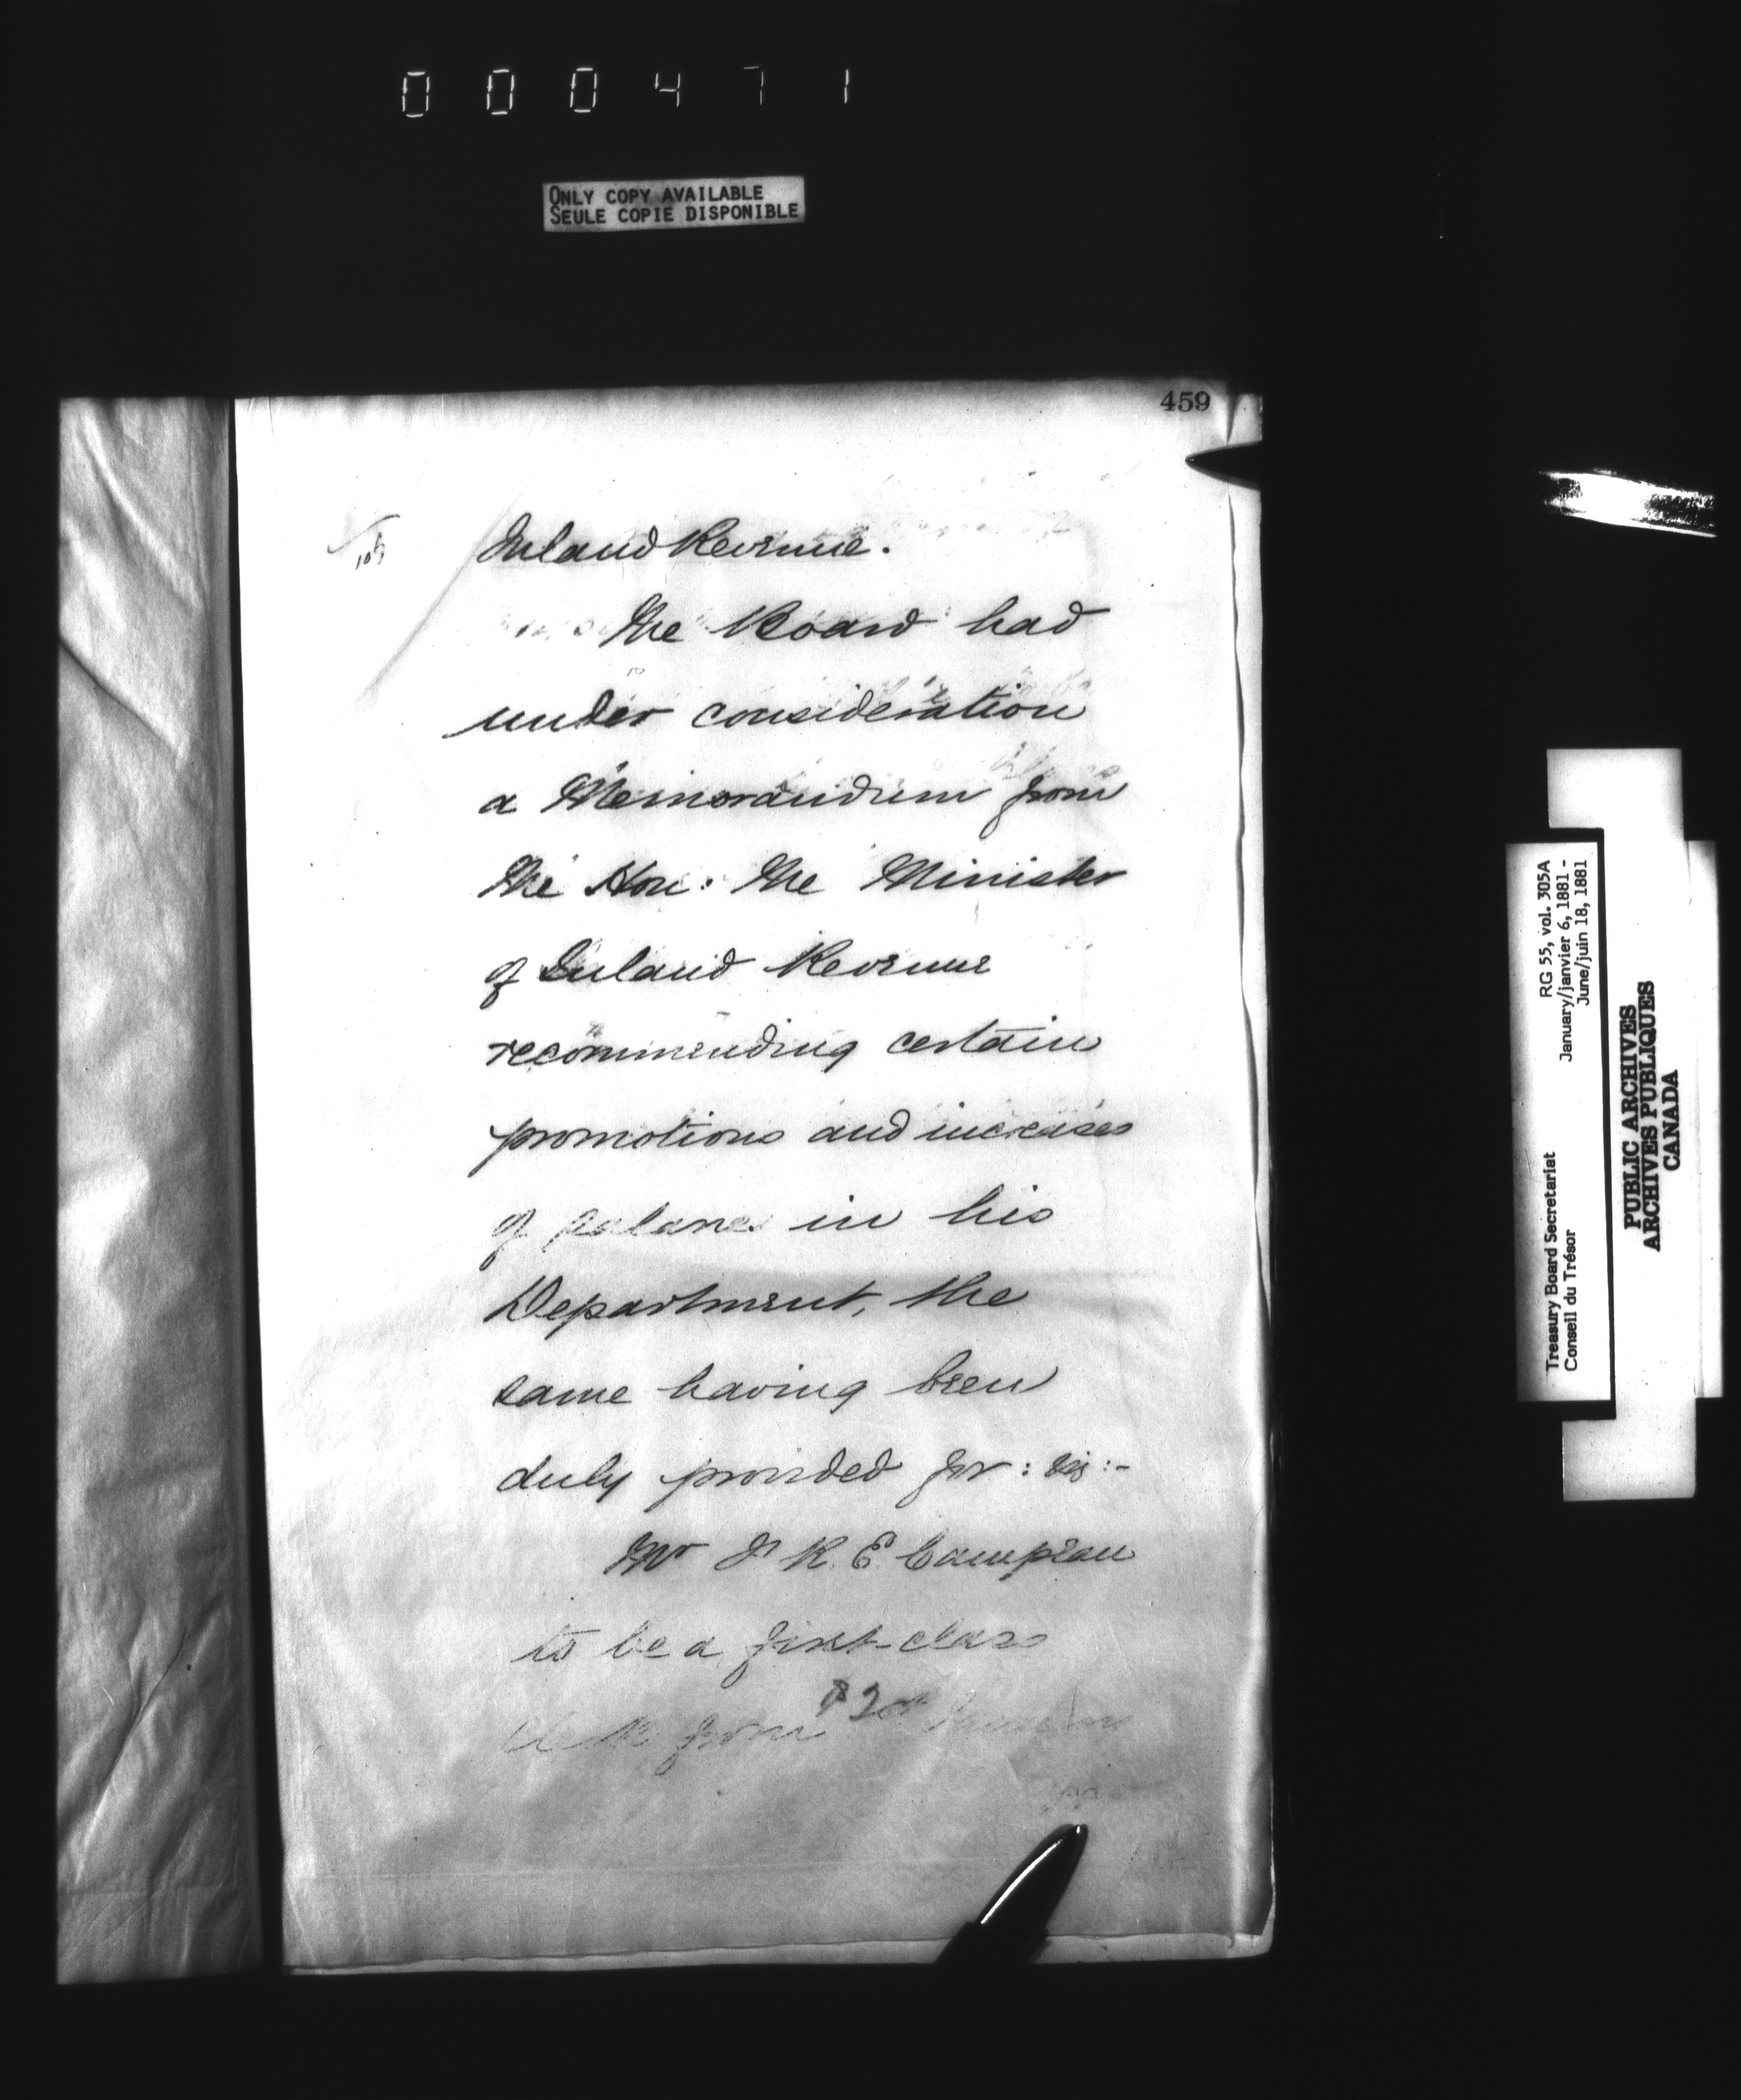 000471
ONLY COPY AVAILABLE
SEULE COPIE DISPONIBLE
459
Inland Revenue.
The Board had
under consideration
a Memorandum from
the Hon: the Minister
of Inland Revenue
recommending certain
promotions and increases
of salaries in his
Department, the
same having been
duly provided for: viz:-
Mr J K. E Campeau
to be a first-class
from
RG 55, vol. 305A
January/janvier 6, 1881 -
June/juin 18, 1881
Treasury Board Secretariat
Conseil du Trésor
PUBLIC ARCHIVES
ARCHIVES PUBLIQUES
CANADA